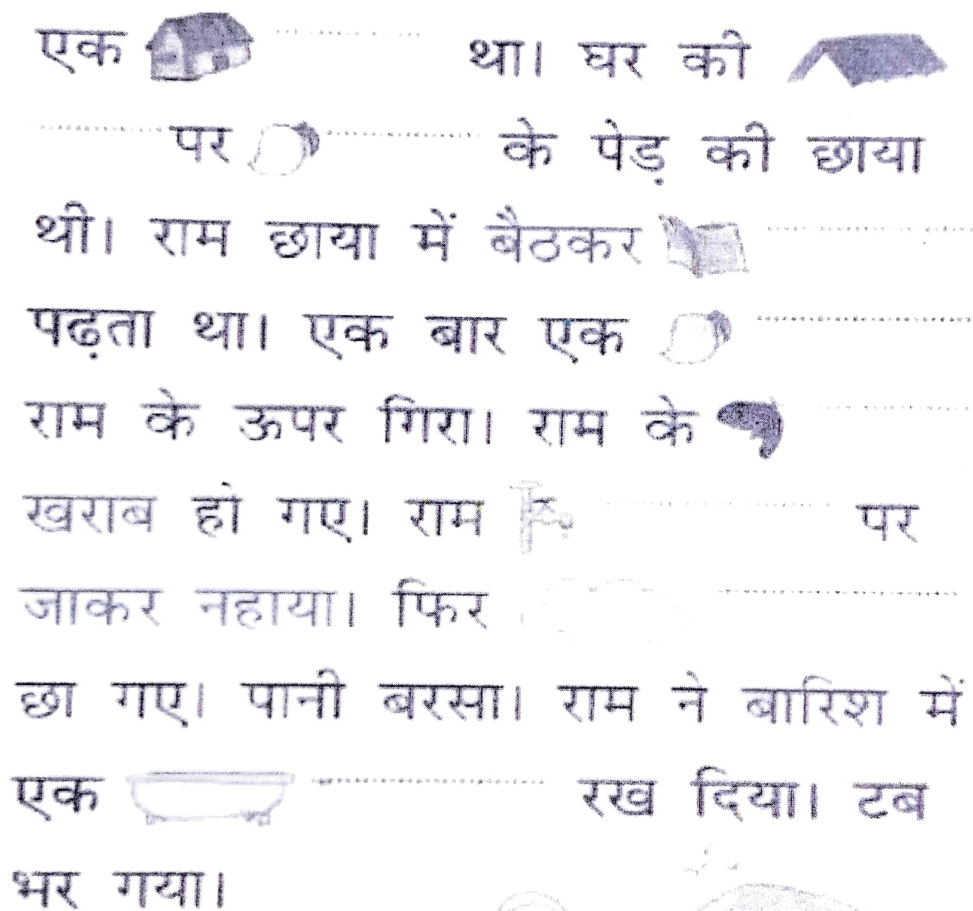 एक ............... था। घर की
............... पर ............... के पेड़ की छाया
थी। राम छाया में बैठकर ...............
पढ़ता था। एक बार एक ...............
राम के ऊपर गिरा। राम के ...............
खराब हो गए। राम ............... पर
जाकर नहाया। फिर ...............
छा गए। पानी बरसा। राम ने बारिश में
एक ............... रख दिया। टब
भर गया।